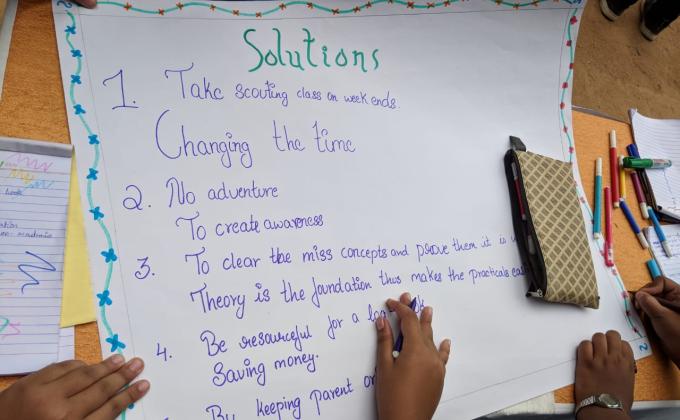 Solutions
1. Take scouting class on week ends.
Changing the time
2. No adventure
To create awareness
3. To clear the miss concepts and prove them it is
Theory is the foundation thus makes the practicals
4. Be resourceful for a
Saving money.
By keeping parent
Look